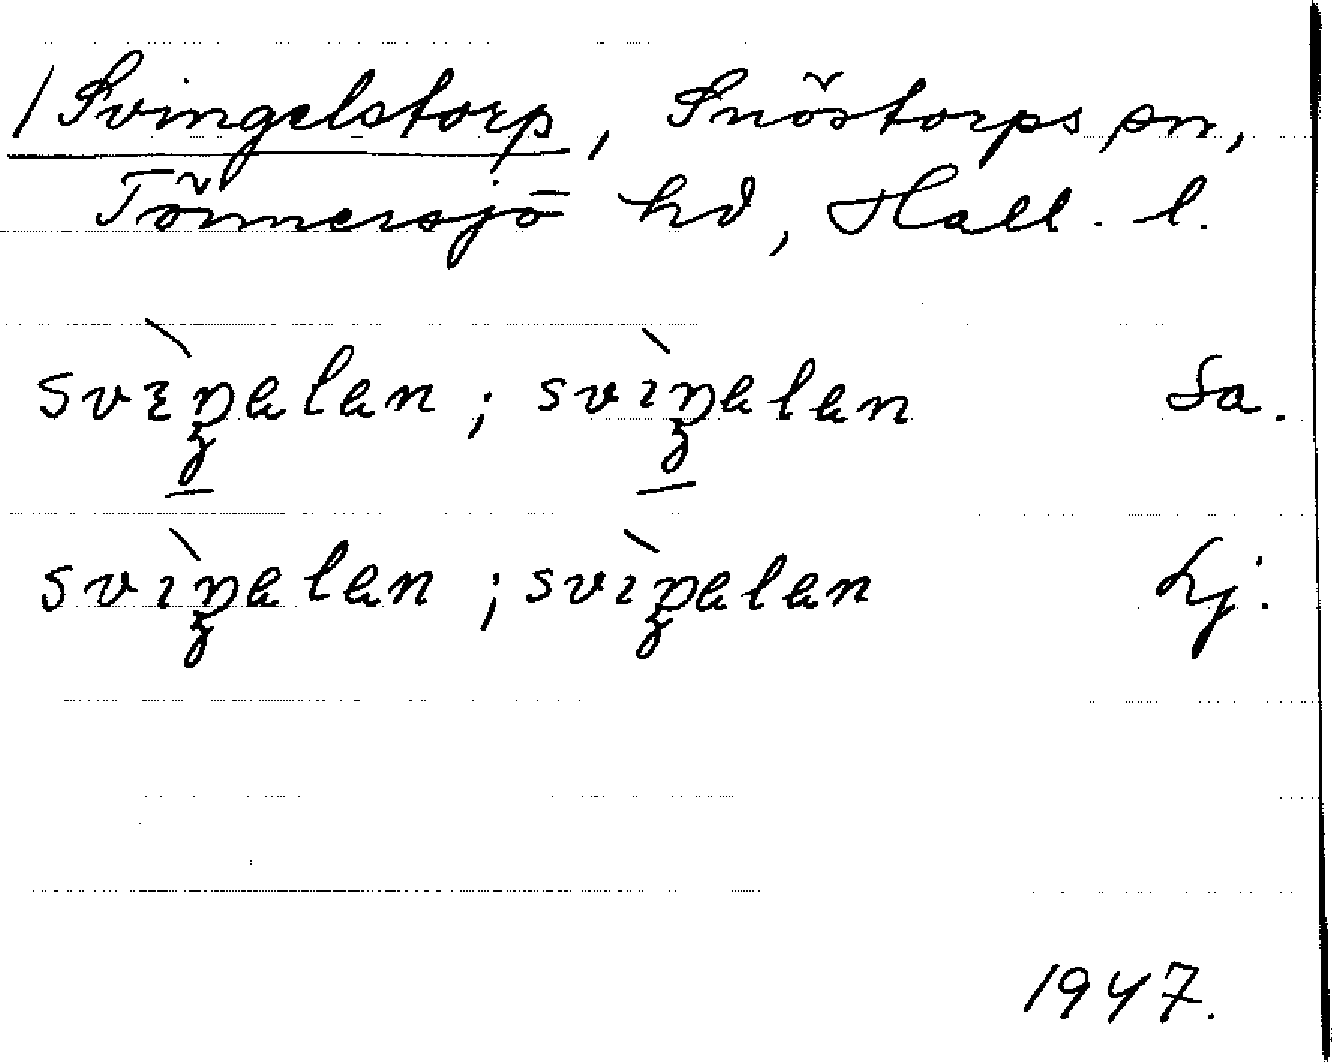 / Svingelstorp, Snöstorps sn,
Tönnersjö hd, Hall. l.
svìŋəlan ; svìŋəlan Sa.
svìŋəlan ; svìŋəlan Lj.
1947.